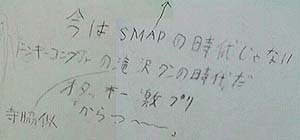 今はSMAPの時代じゃない
ドンキーコングJrの滝沢クンの時代だ
オタッキー激プリ
寺脇似
「からつ〜〜。